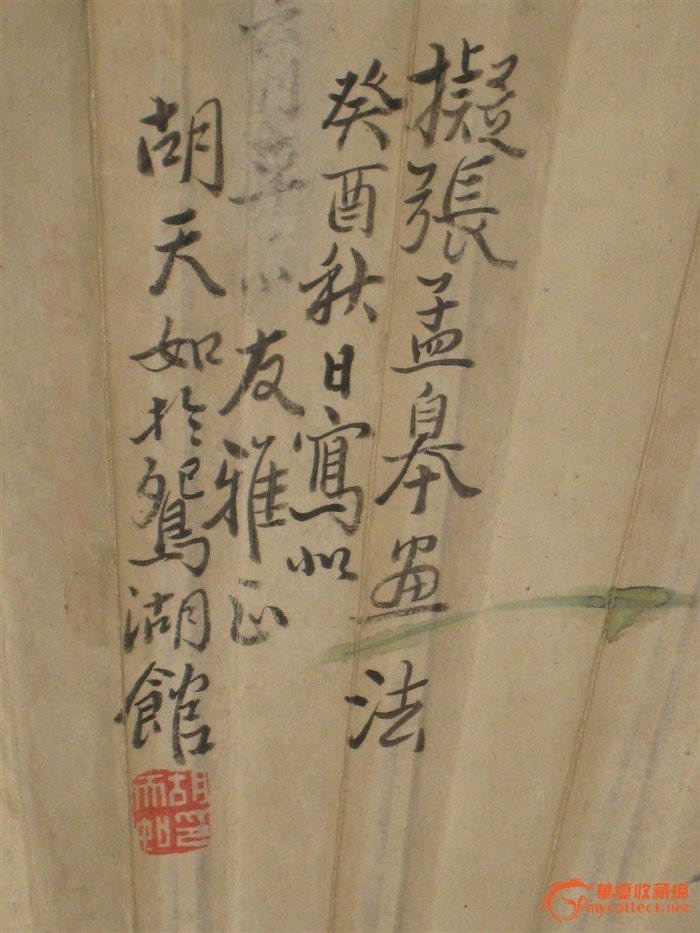 擬張孟皋畫法
癸酉秋日寫似
友雅正
胡天如於鴛湖館
胡天如印
華夏收藏網
mycollect.net